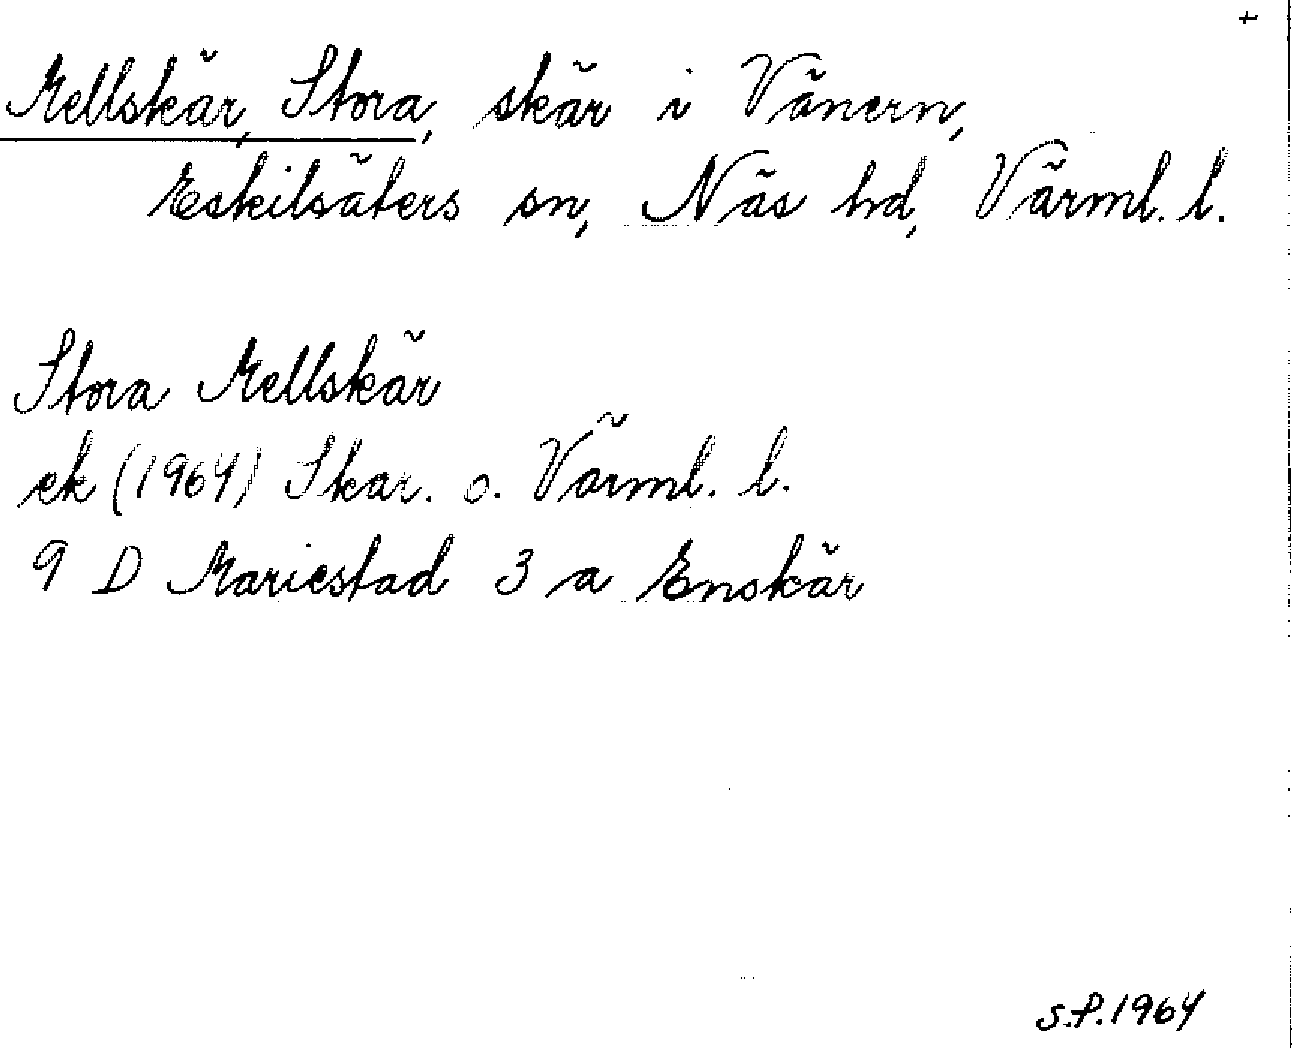 +
Mellskär, Stora, skär i Vänern,
Eskilsäters sn, Näs hd, Värml. l.
Stora Mellskär
ek (1964) Skar. o. Värml. l.
9 D Mariestad 3 a Enskär
S.P. 1964